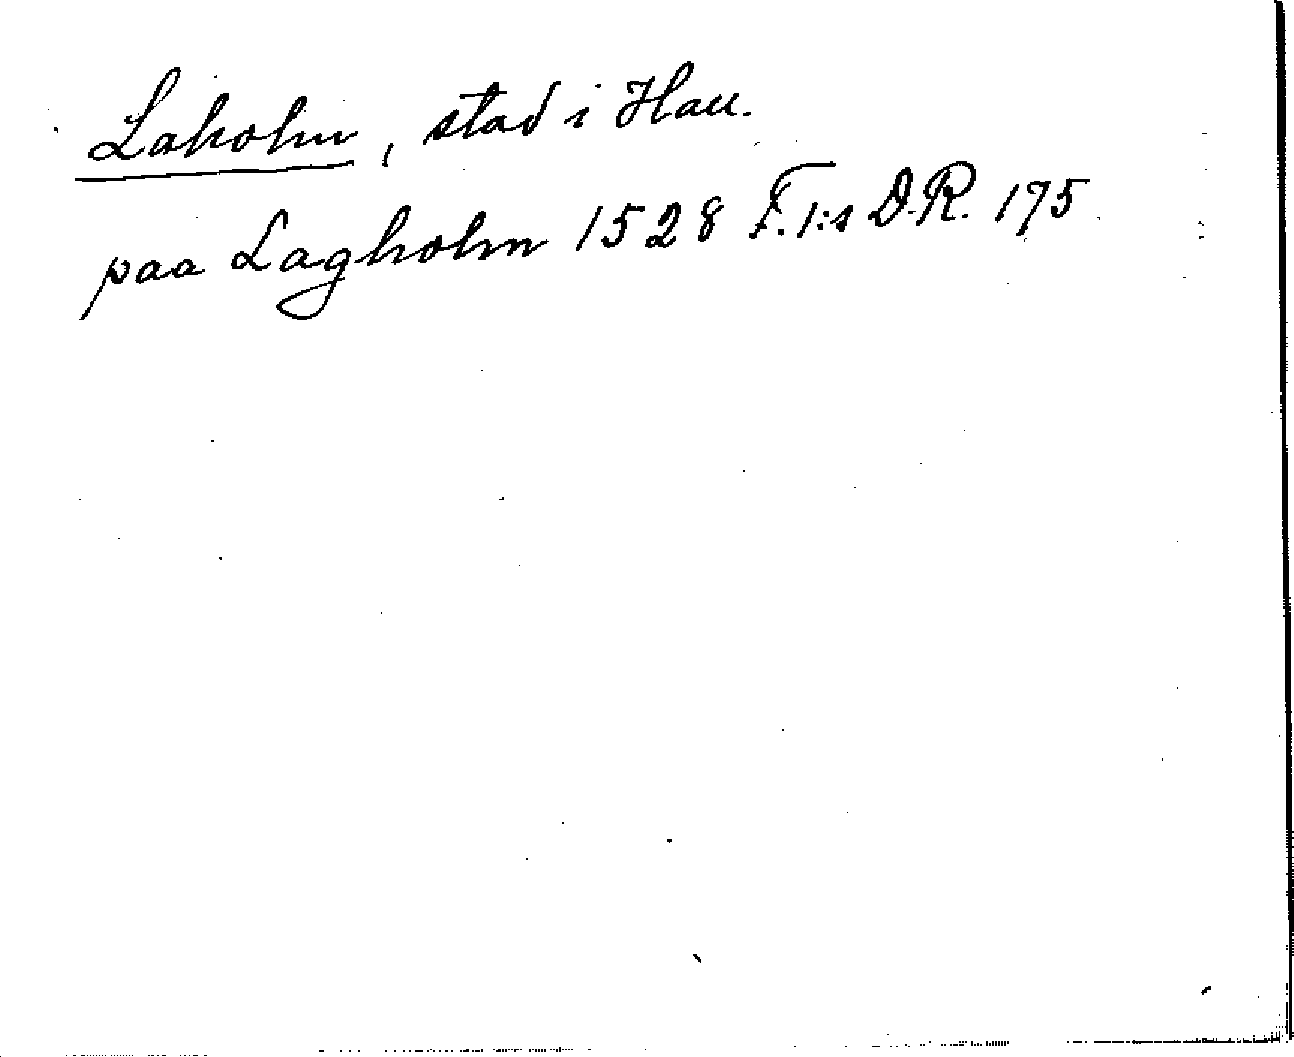 Laholm, stad i Hall.
paa Lagholm 1528 F. 1:s D.R. 175